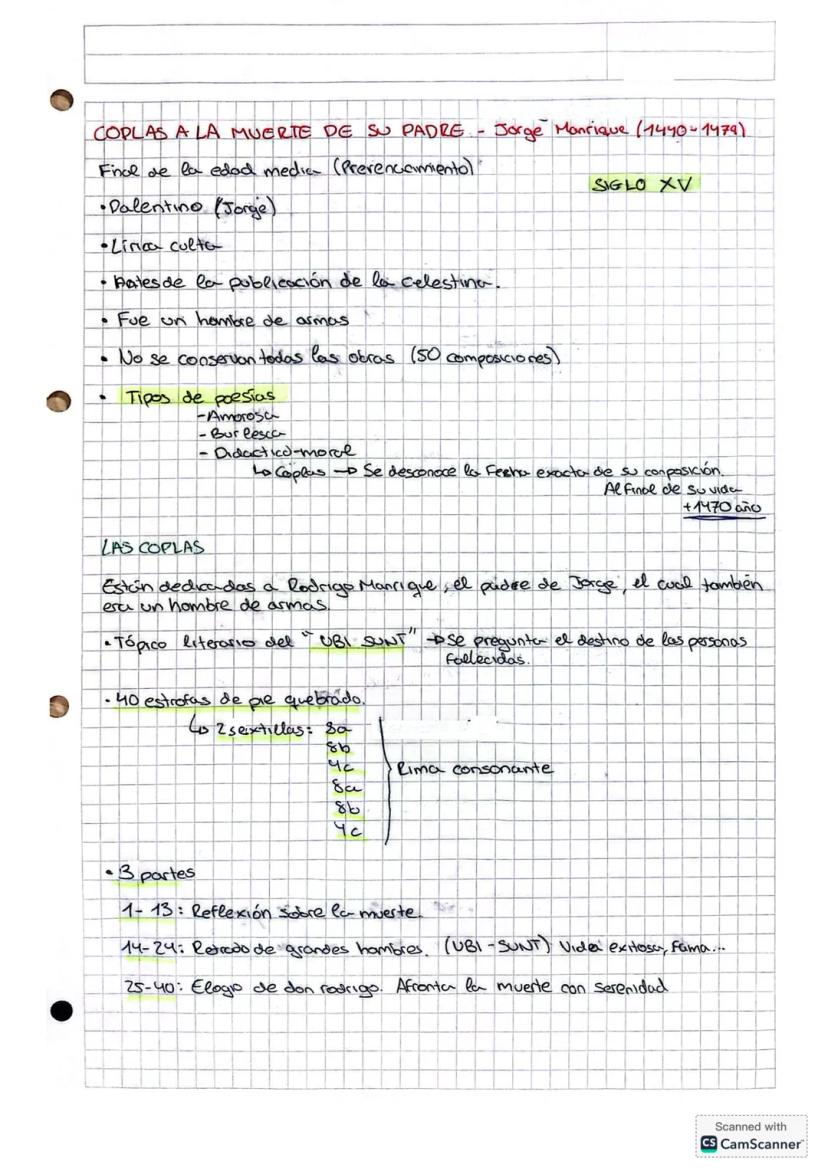 COPLAS A LA MUERTE DE SU PADRE - Jorge Manrique (1440-1479)
Final de la edad media (Prerenacimiento)
SIGLO XV
• Palentino (Jorge)
• Lírica culta
• Antes de la publicación de la celestina.
• Fue un hombre de armas
• No se conservan todas las obras (50 composiciones)
• Tipos de poesías
- Amorosa
- Burlesca
- Didáctico-moral
↳ Coplas → Se desconoce la fecha exacta de su composición.
Al final de su vida
+1470 año
LAS COPLAS
Están dedicadas a Rodrigo Manrique, el padre de Jorge, el cual también
era un hombre de armas.
• Tópico literario del "UBI SUNT" → Se pregunta el destino de las personas
fallecidas.
• 40 estrofas de pie quebrado.
↳ 2 sextillas: 8a
8b
4c
Rima consonante
8a
8b
4c
• 3 partes
1-13: Reflexión sobre la muerte.
14-24: Retrado de grandes hombres. (UBI-SUNT) Vida exitosa, fama...
25-40: Elogio de don rodrigo. Afronta la muerte con serenidad
Scanned with
CS CamScanner